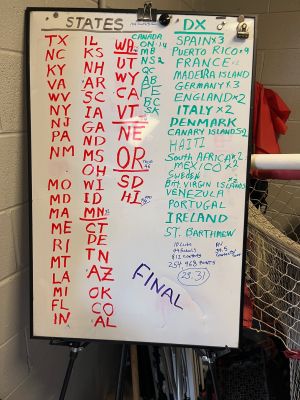 STATES
TX
NC
KY
VA
WV
NY
NJ
PA
NM
MO
MD
MA
ME
RI
MT
LA
MI
FL
IN
IL
KS
NH
AR
SC
IA
GA
ND
MS
OH
WI
ID
MN
CT
DE
TN
AZ
OK
CO
AL
WA
UT
WY
CA
VT
NE
OR
SD
HI
CANADA
ON-14
MB
NS 2
QC
AB
PE
BC
SK
DX
SPAIN x3
PUERTO RICO x9
FRANCE
MADEIRA ISLAND
GERMANY x3
ENGLAND x2
ITALY x2
DENMARK
CANARY ISLANDS x2
HAITI
SOUTH AFRICA x2
MEXICO x2
SWEDEN
BRIT VIRGIN ISLANDS
VENEZULA
PORTUGAL
IRELAND
ST. BARTHMEW
812 CONTACTS
254,968 POINTS
FINAL